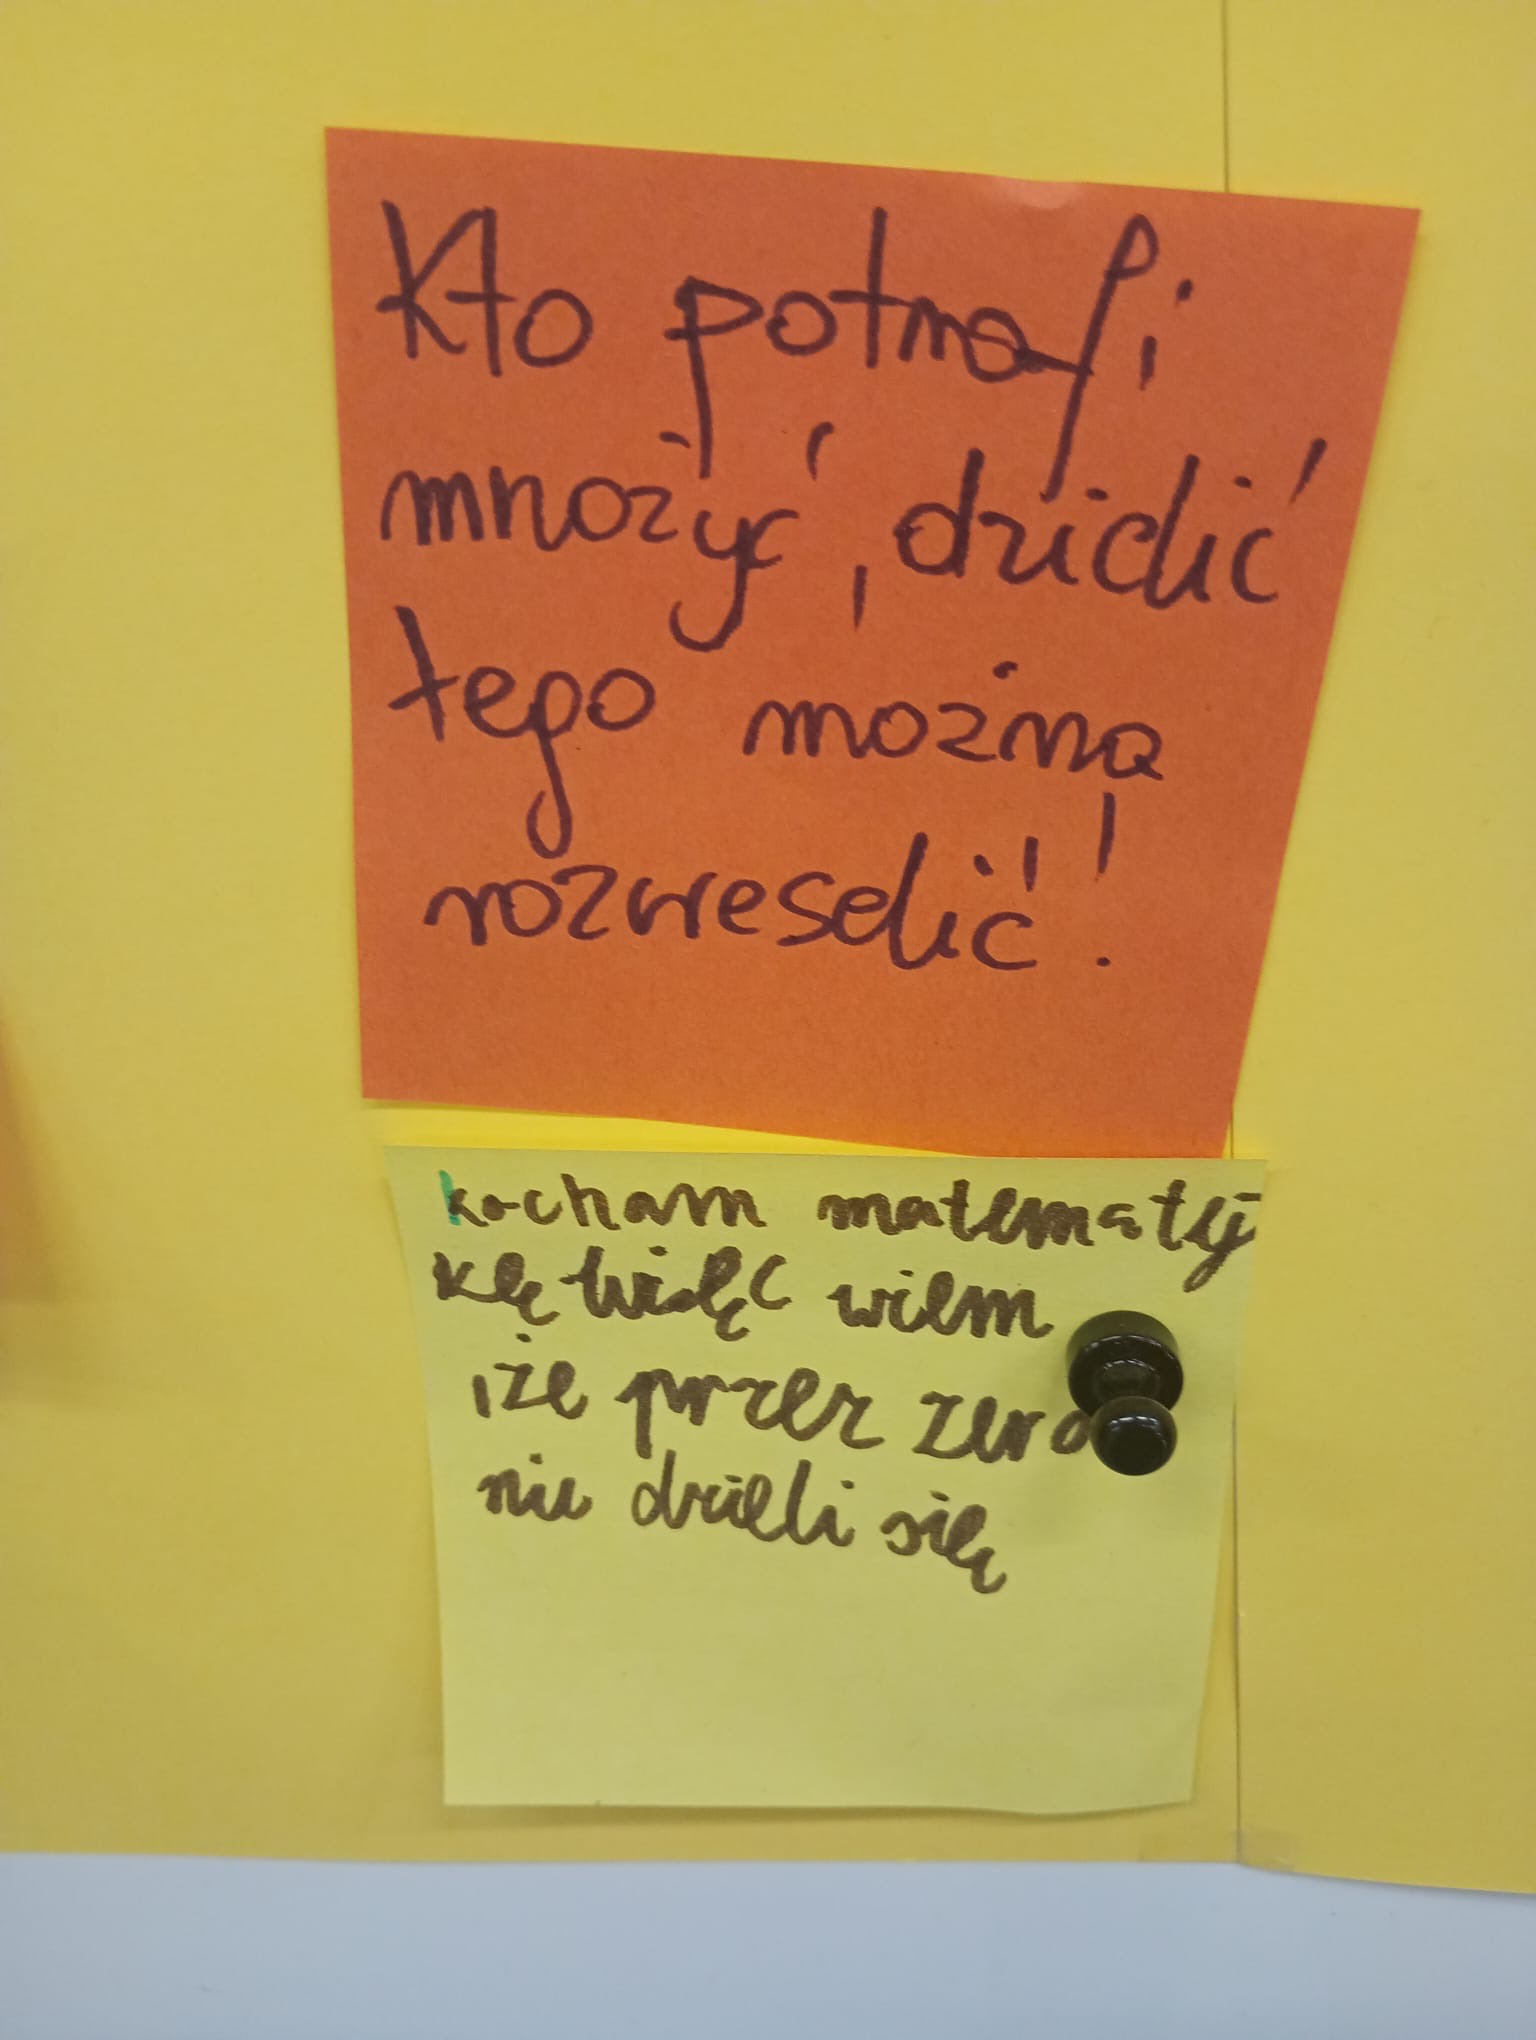 Kto potrafi
mnożyć, dzielić
tego można
rozweselić!
kocham matematy
kę więc wiem
,że przez zero
nie dzieli się